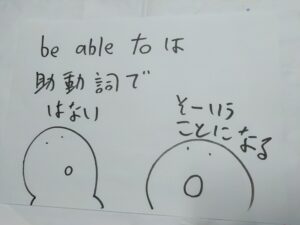 be able to は
助動詞で
はない
そーいう
ことになる